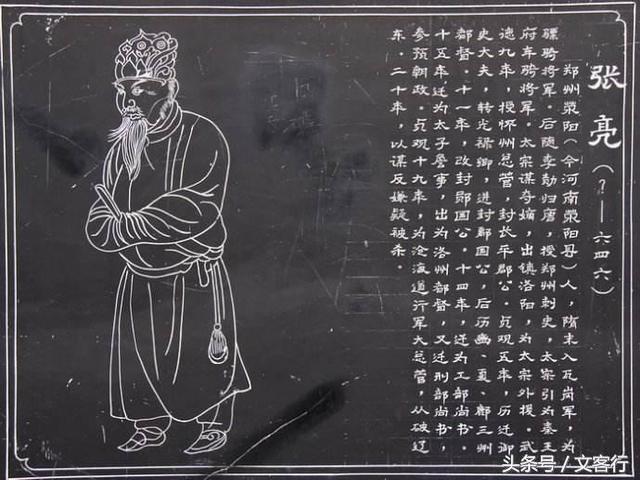 张亮(?—六四六)
郑州荥阳(今河南荥阳县)人,隋末入瓦岗军,为
骠骑将军。后随李勣归唐,授郑州刺史,太宗引为秦王
府车骑将军。太宗谋夺嫡,出镇洛阳,为太宗外援。武
德九年,授怀州总管,封长平郡公。贞观五年,历迁御
史大夫,转光禄卿,进封鄅国公,后历豳、夏、鄜三州
都督。十一年,改封郧国公。十四年,迁为工部尚书。
十五年迁为太子詹事,出为洛州都督,又迁刑部尚书,
参预朝政。贞观十九年,为沧海道行军大总管,从破辽
东。二十年,以谋反嫌疑被杀。
头条号/文客行